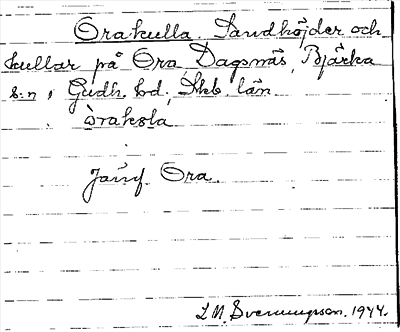 Orakulla. Sandhöjder och
kullar på Ora, Dagsnäs, Bjärka
s:n, Gudh. hd, Skb. län.
òrakola
Jämf. Ora.
L. M. Svenungsson. 1944.